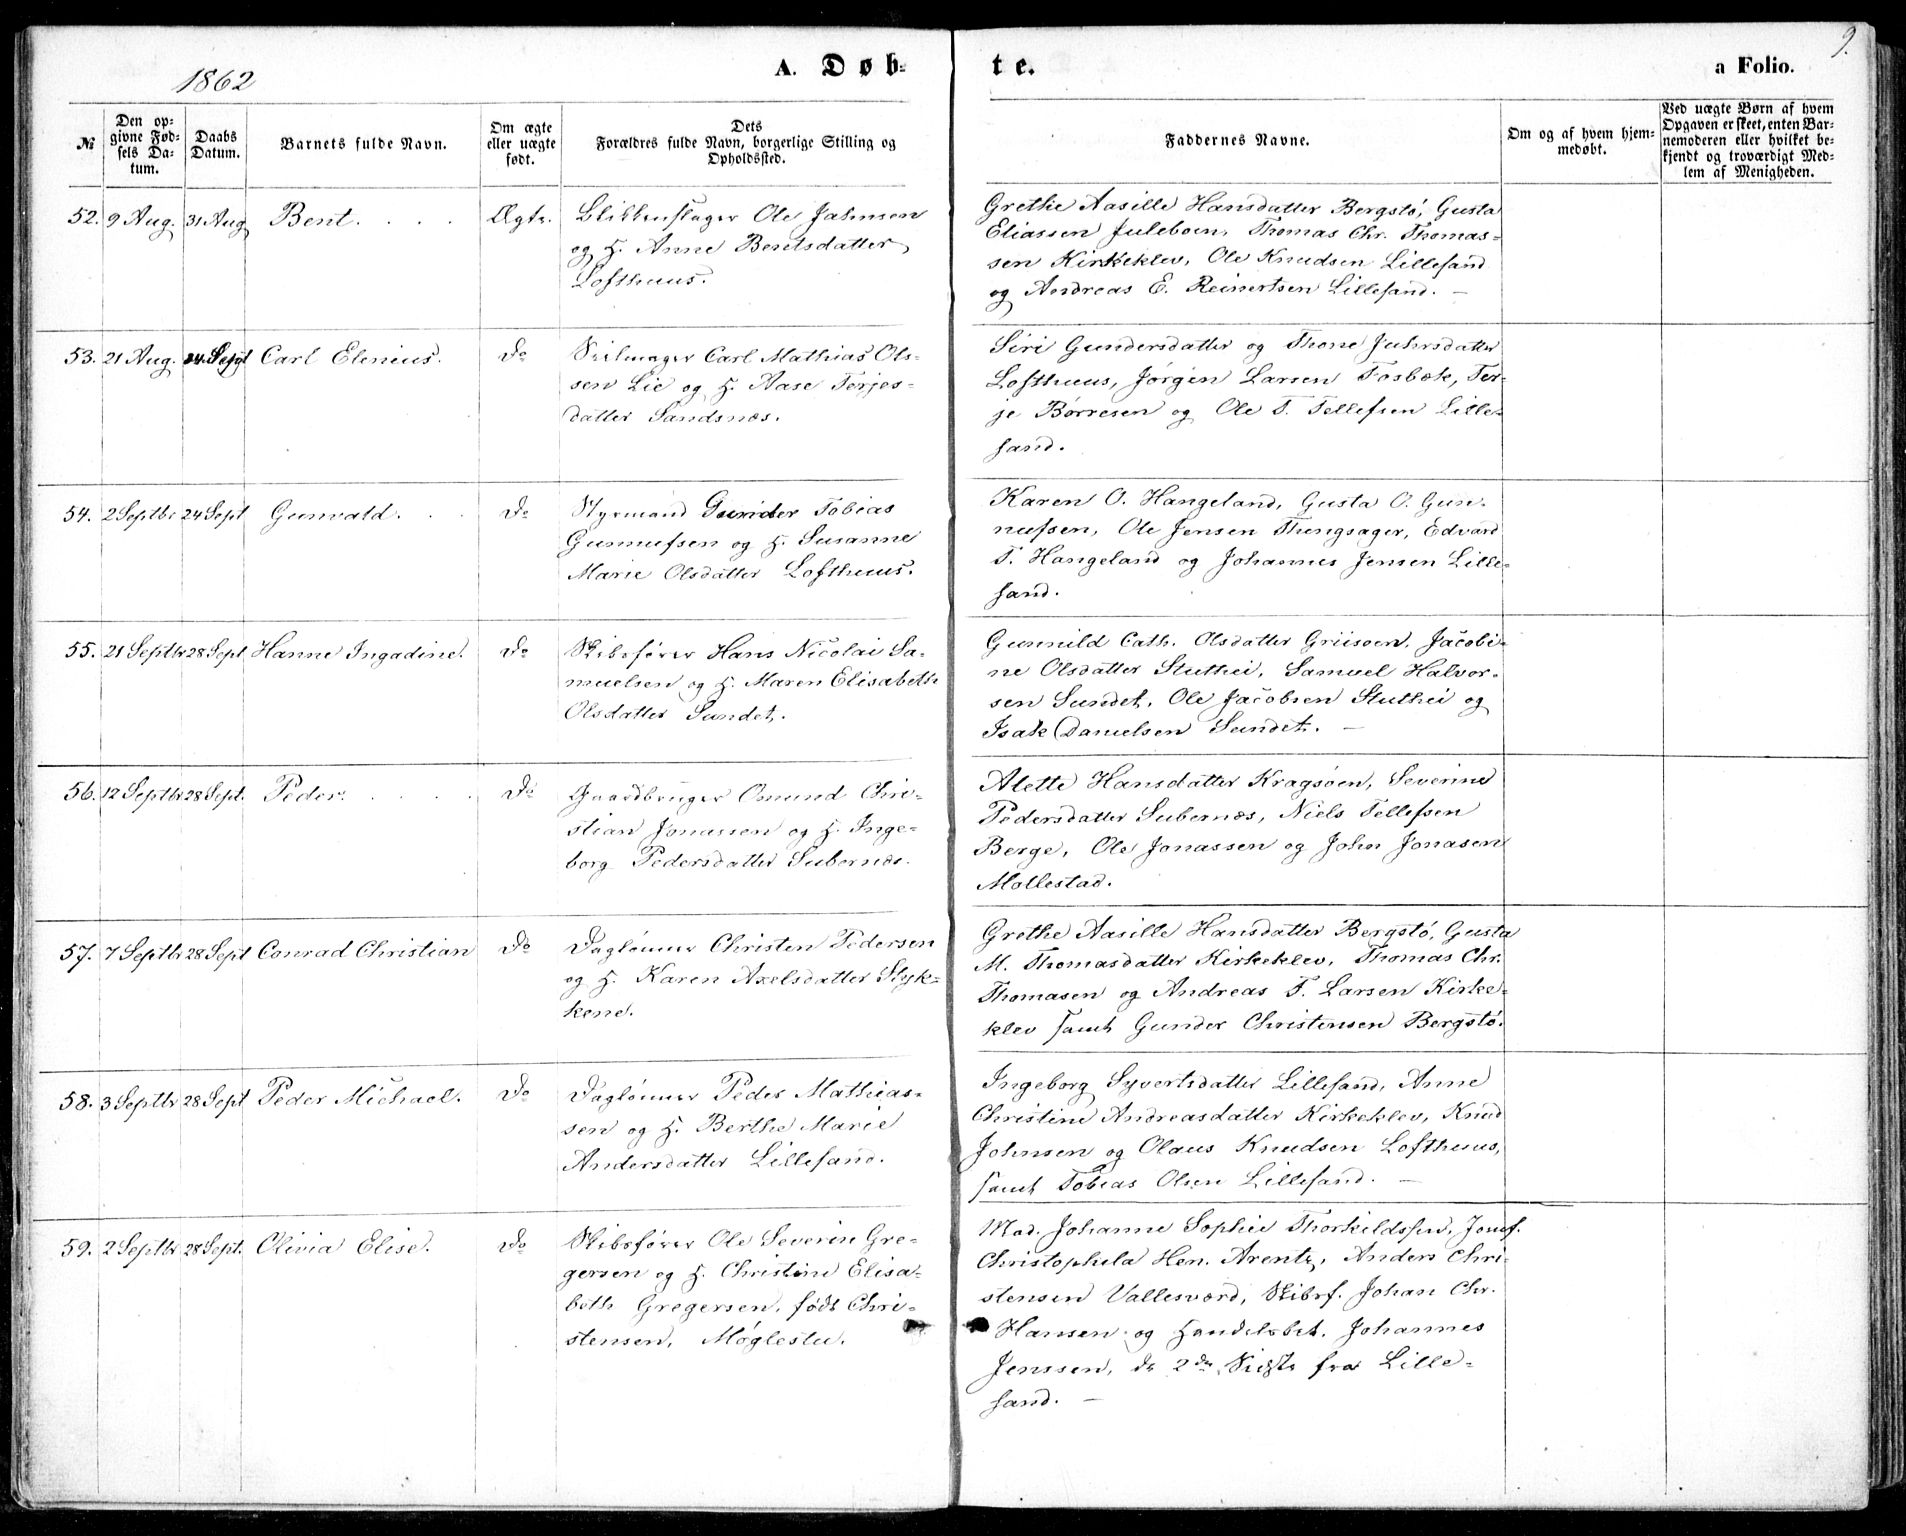 9.
1862
A. Døb-
te.
a Folio.
№
Den op-
givne Fød-
sels Da-
tum.
Daabs
Datum.
Barnets fulde Navn.
Om ægte
eller uægte
født.
Dets
Forældres fulde Navn, borgerlige Stilling og
Opholdssted.
Faddernes Navne.
Om og af hvem hjem-
medøbt.
Ved uægte Børn af hvem
Opgaven er skeet, enten Bar-
nemoderen eller hvilket be-
kjendt og troværdigt Med-
lem af Menigheden.
52. 9 Aug. 31 Aug Bent. Ægte.
Blikkenslager Ole Jahnsen
og H. Anne Bentsdatter
Lofthuus.
Grethe Aasille Hansdatter Bergstø, Gusta
Eliassen Juleboen, Thomas Chr. Thomas-
sen Kirkeklev, Ole Knudsen Lillesand
og Andreas E. Reinertsen Lillesand. —
53. 21 Aug. 24 Sept Carl Elenius. Do
Seilmager Carl Mathias Ols-
sen Lie og H. Aase Terjes-
datter Sandsnæs.
Siri Gundersdatter og Thone Juhrsdatter
Lofthuus, Jørgen Larsen Fosbæk, Ter-
je Børresen og Ole T. Tellefsen Lille-
sand.
54. 2 Septbr 24 Sept Gunvald. Do
Styrmand Gunder Tobias
Gunnufsen og H. Susanne
Marie Olsdatter Lofthuus.
Karen O. Hangeland, Gusta O. Gun-
nufsen, Ole Jensen Thingsager, Edvard
T. Hangeland og Johannes Jensen Lille-
sand.
55. 21 Septbr 28 Sept Hanne Ingadine. Do
Skibsfører Hans Nicolai Sa-
muelsen og H. Maren Elisabeth
Olsdatter Sundet.
Gunnild Cath. Olsdatter Griisøen, Jacobi-
ne Olsdatter Stuthei, Samuel Halvor-
sen Sundet, Ole Jacobsen Stuthei og
Isak Danielsen Sundet. —
56. 12 Septbr 28 Sept. Peder. Do
Gaardbruger Omund Chri-
stian Jonassen og H. Inge-
borg Pedersdatter Subernæs.
Alette Hansdatter Kragsøen, Severine
Pedersdatter Subernæs, Niels Tellefsen
Berge, Ole Jonassen og John Jonasen
Mollestad.
57. 7 Septbr 28 Sept Conrad Christian Do
Daglønner Christen Pedersen
og H. Karen Axelsdatter Styk-
kene.
Grethe Aasille Hansdatter Bergstø, Gusta
M. Thomasdatter Kirkeklev, Thomas Chr.
Thomasen og Andreas T. Larsen Kirke-
klev samt Gunder Christensen Bergstø.
58. 3 Septbr 28 Sept Peder Michael. Do
Daglønner Peder Mathias-
sen og H. Berthe Marie
Andersdatter Lillesand.
Ingeborg Syvertsdatter Lillesand, Anne
Christine Andreasdatter Kirkeklev, Knud
Johnsen og Olaus Knudsen Lofthuus,
samt Tobias Olsen Lillesand. —
59. 2 Septbr 28 Sept. Olivia Elise. Do
Skibsfører Ole Severin Gre-
gersen og H. Christine Elisa-
beth Gregersen, født Chri-
stensen, Møglestu.
Mad. Johanne Sophie Thorkildssen, Jomf.
Christophila Hen. Arentz, Anders Chri-
stensen Vallesværd, Skibsf. Johan Chr.
Hansen og Handelsbet. Johannes
Jenssen, de 2de Sidste fra Lille-
sand. —